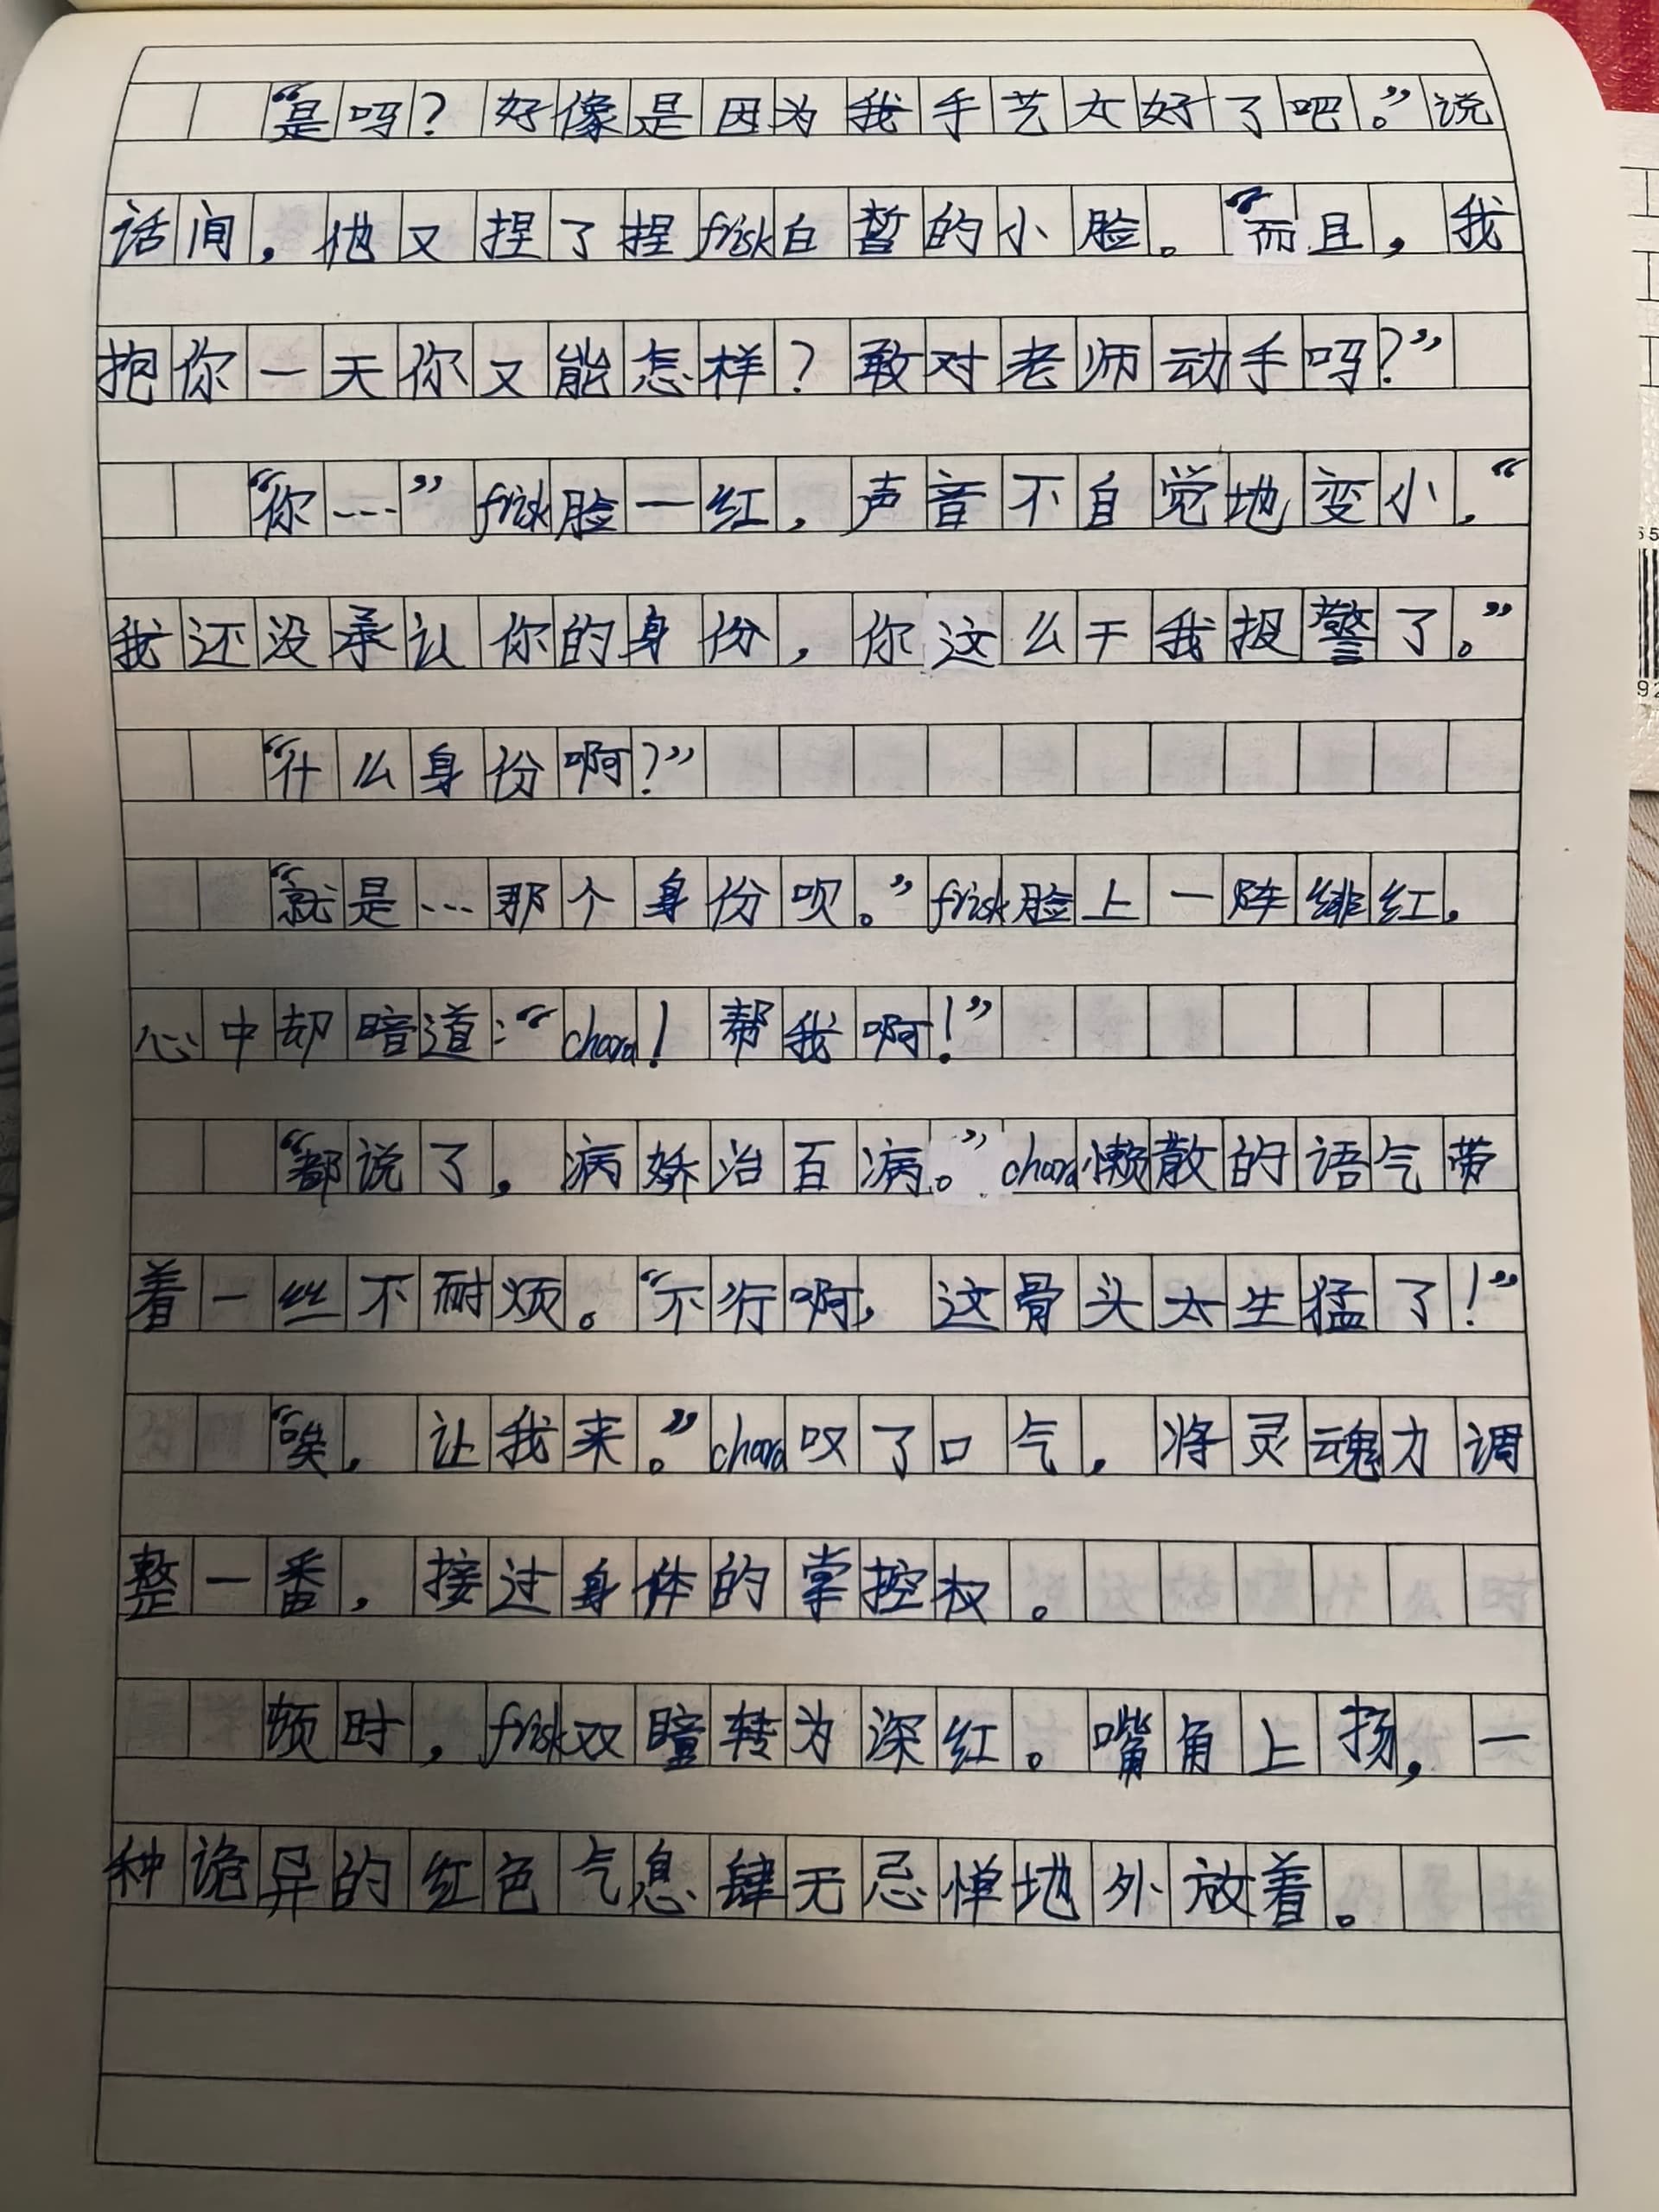 “是吗？好像是因为我手艺太好了吧。”说
话间，他又捏了捏frisk白皙的小脸。“而且，我
抱你一天你又能怎样？敢对老师动手吗？”
“你……”frisk脸一红，声音不自觉地变小，“
我还没承认你的身份，你这么干我报警了。”
“什么身份啊？”
“就是…那个身份呗。”frisk脸上一阵绯红，
心中却暗道：“chara！帮我啊！”
“都说了，病娇治百病。”chara懒散的语气带
着一丝不耐烦。“不行啊，这骨头太生猛了！”
“唉，让我来。”chara叹了口气，将灵魂力调
整一番，接过身体的掌控权。
顿时，frisk双瞳转为深红。嘴角上扬，一
种诡异的红色气息肆无忌惮地外放着。